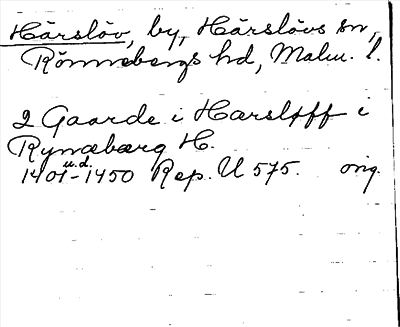 Härslöv, by, Härslövs sn,
Rönnebergs hd, Malm. l.
2 Gaarde i Harsløff i
Rynæbærg H.
u.d.
1401-1450 Rep. U 575. orig.